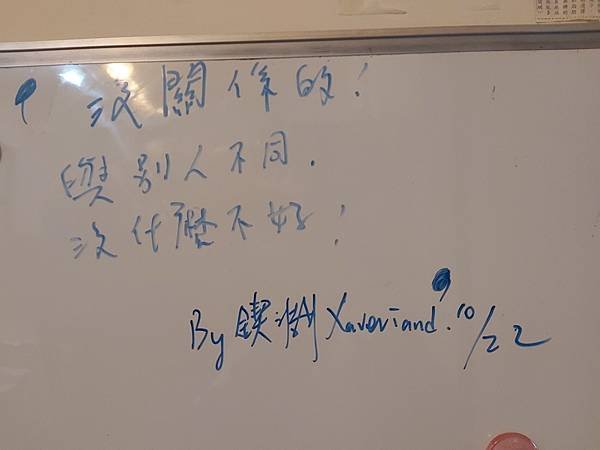 沒關係的!
與別人不同.
沒什麼不好!
By 鍥 Xaveriand. 10/22